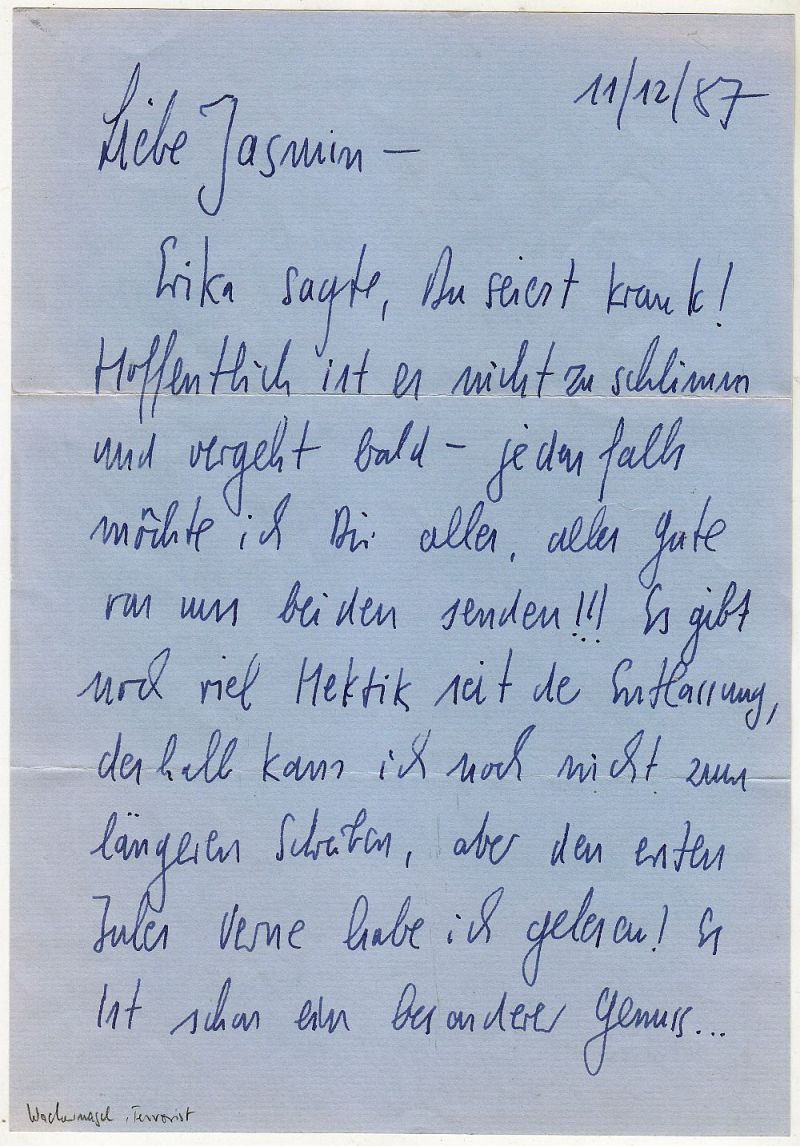 11/12/87
Liebe Jasmin –
Erika sagte, Du seiest krank!
Hoffentlich ist es nicht zu schlimm
und vergeht bald – jedenfalls
möchte ich Dir alles, alles Gute
von uns beiden senden!!! Es gibt
noch viel Hektik seit de Entlassung,
deshalb kam ich noch nicht zum
längeren Schreiben, aber den ersten
Jules Verne habe ich gelesen! Es
ist schon ein besonderer Genuss...
Wackernagel, Terrorist